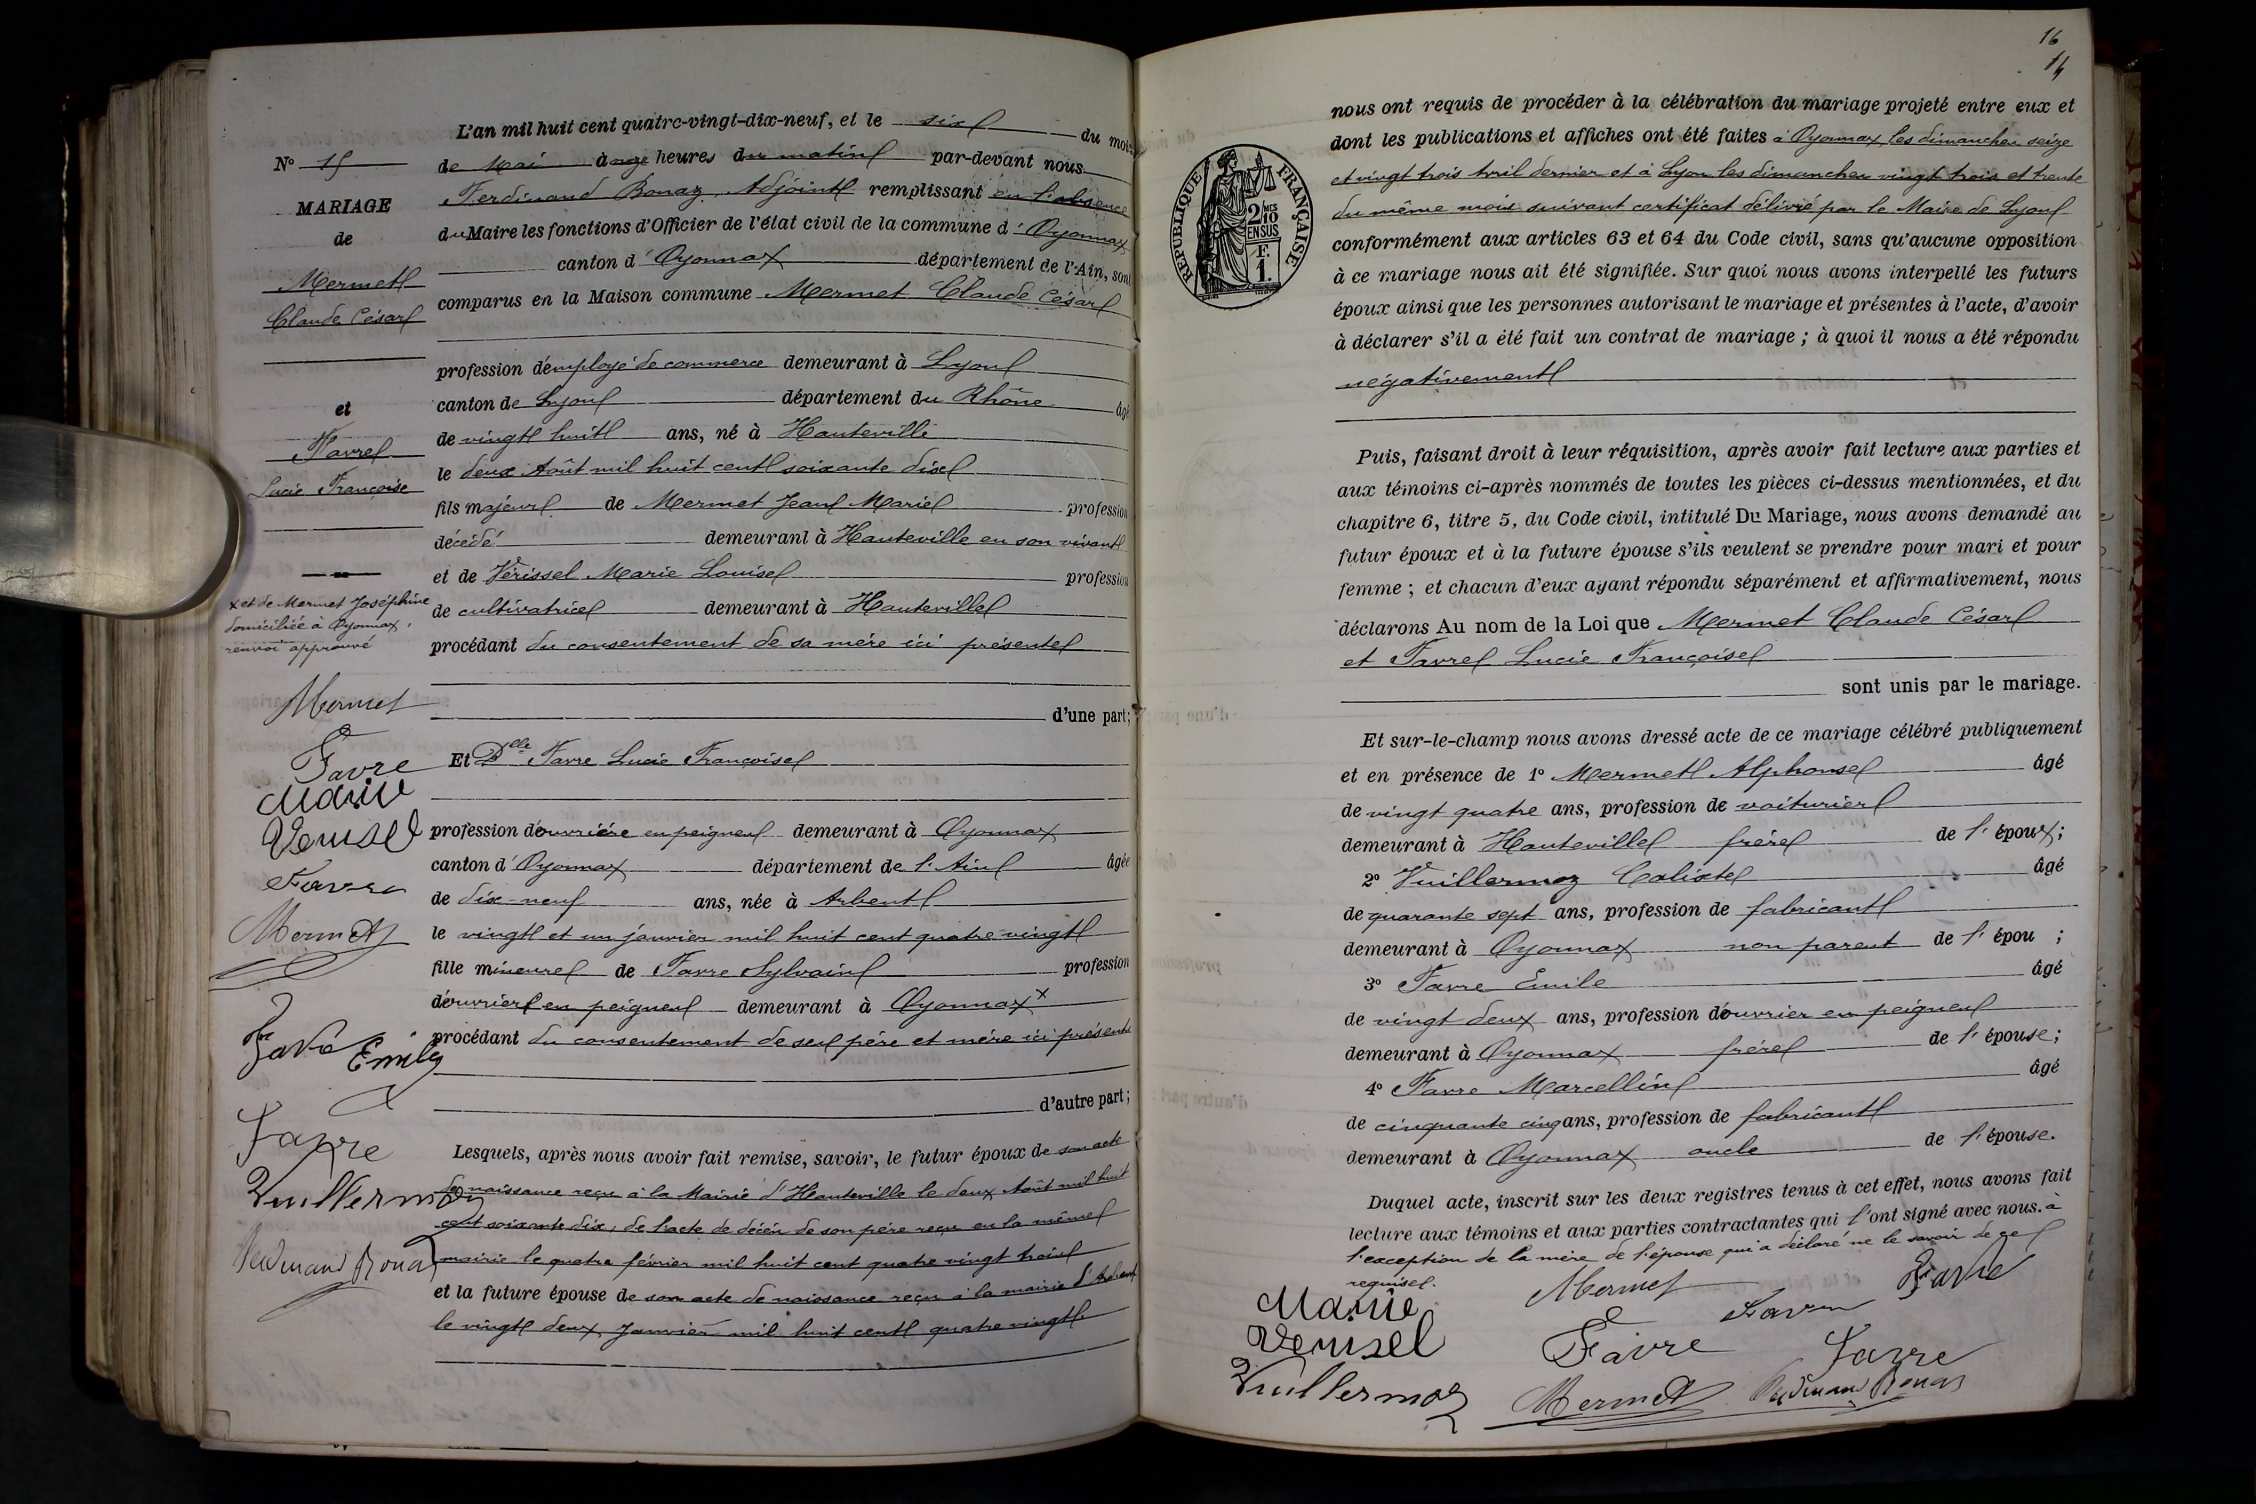 N° 15
MARIAGE
de
Mermet
Claude César
et
Favre
Lucie Françoise
x et de Mermet Joséphine
domiciliée à Oyonnax,
renvoi approuvé
Mermet
Favre
Marie
Verissel
Favre
Mermet
Favre Emile
Favre
Vuillermoz
Ferdinand Bonaz
L'an mil huit cent quatre-vingt-dix-neuf, et le six du mois
de Mai à onze heures du matin par-devant nous
Ferdinand Bonaz, Adjoint remplissant en l'absence
du Maire les fonctions d'Officier de l'état civil de la commune d'Oyonnax
canton d'Oyonnax département de l'Ain, sont
comparus en la Maison commune Mermet Claude César
profession d'employé de commerce demeurant à Lyon
canton de Lyon département du Rhône âgé
de vingt huit ans, né à Hauteville
le deux Août mil huit cent soixante dix
fils majeur de Mermet Jean Marie profession
décédé demeurant à Hauteville en son vivant
et de Vérissel Marie Louise profession
de cultivatrice demeurant à Hauteville
procédant du consentement de sa mère ici présente
d'une part;
Et Dlle Favre Lucie Françoise
profession d'ouvrière en peignes demeurant à Oyonnax
canton d'Oyonnax département de l'Ain âgée
de dix-neuf ans, née à Arbent
le vingt et un janvier mil huit cent quatre vingt
fille mineure de Favre Sylvain profession
d'ouvrier en peignes demeurant à Oyonnax x
procédant du consentement de ses père et mère ici présents
d'autre part;
Lesquels, après nous avoir fait remise, savoir, le futur époux de son acte
de naissance reçu à la Mairie d'Hauteville le deux Août mil huit
cent soixante dix, de l'acte de décès de son père reçu en la même
mairie le quatre février mil huit cent quatre vingt trois
et la future épouse de son acte de naissance reçu à la mairie d'Arbent
le vingt deux Janvier mil huit cent quatre vingt
16
14
RÉPUBLIQUE FRANÇAISE
2/10 MES
EN SUS
F.
1.
nous ont requis de procéder à la célébration du mariage projeté entre eux et
dont les publications et affiches ont été faites à Oyonnax, les dimanches seize
et vingt trois Avril dernier et à Lyon les dimanches vingt trois et trente
du même mois suivant certificat délivré par le Maire de Lyon
conformément aux articles 63 et 64 du Code civil, sans qu'aucune opposition
à ce mariage nous ait été signifiée. Sur quoi nous avons interpellé les futurs
époux ainsi que les personnes autorisant le mariage et présentes à l'acte, d'avoir
à déclarer s'il a été fait un contrat de mariage ; à quoi il nous a été répondu
négativement
Puis, faisant droit à leur réquisition, après avoir fait lecture aux parties et
aux témoins ci-après nommés de toutes les pièces ci-dessus mentionnées, et du
chapitre 6, titre 5, du Code civil, intitulé Du Mariage, nous avons demandé au
futur époux et à la future épouse s'ils veulent se prendre pour mari et pour
femme ; et chacun d'eux ayant répondu séparément et affirmativement, nous
déclarons Au nom de la Loi que Mermet Claude César
et Favre Lucie Françoise
sont unis par le mariage.
Et sur-le-champ nous avons dressé acte de ce mariage célébré publiquement
et en présence de 1° Mermet Alphonse âgé
de vingt quatre ans, profession de voiturier
demeurant à Hauteville frère de l'époux;
2° Vuillermoz Calixte âgé
de quarante sept ans, profession de fabricant
demeurant à Oyonnax non parent de l'épou ;
3° Favre Emile âgé
de vingt deux ans, profession d'ouvrier en peignes
demeurant à Oyonnax frère de l'épouse;
4° Favre Marcellin âgé
de cinquante cinq ans, profession de fabricant
demeurant à Oyonnax oncle de l'épouse.
Duquel acte, inscrit sur les deux registres tenus à cet effet, nous avons fait
lecture aux témoins et aux parties contractantes qui l'ont signé avec nous. à
l'exception de la mère de l'épouse qui a déclaré ne le savoir de ce
requise.
Mermet Favre
Marie Favre
Verissel Favre Favre
Vuillermoz Mermet Ferdinand Bonaz